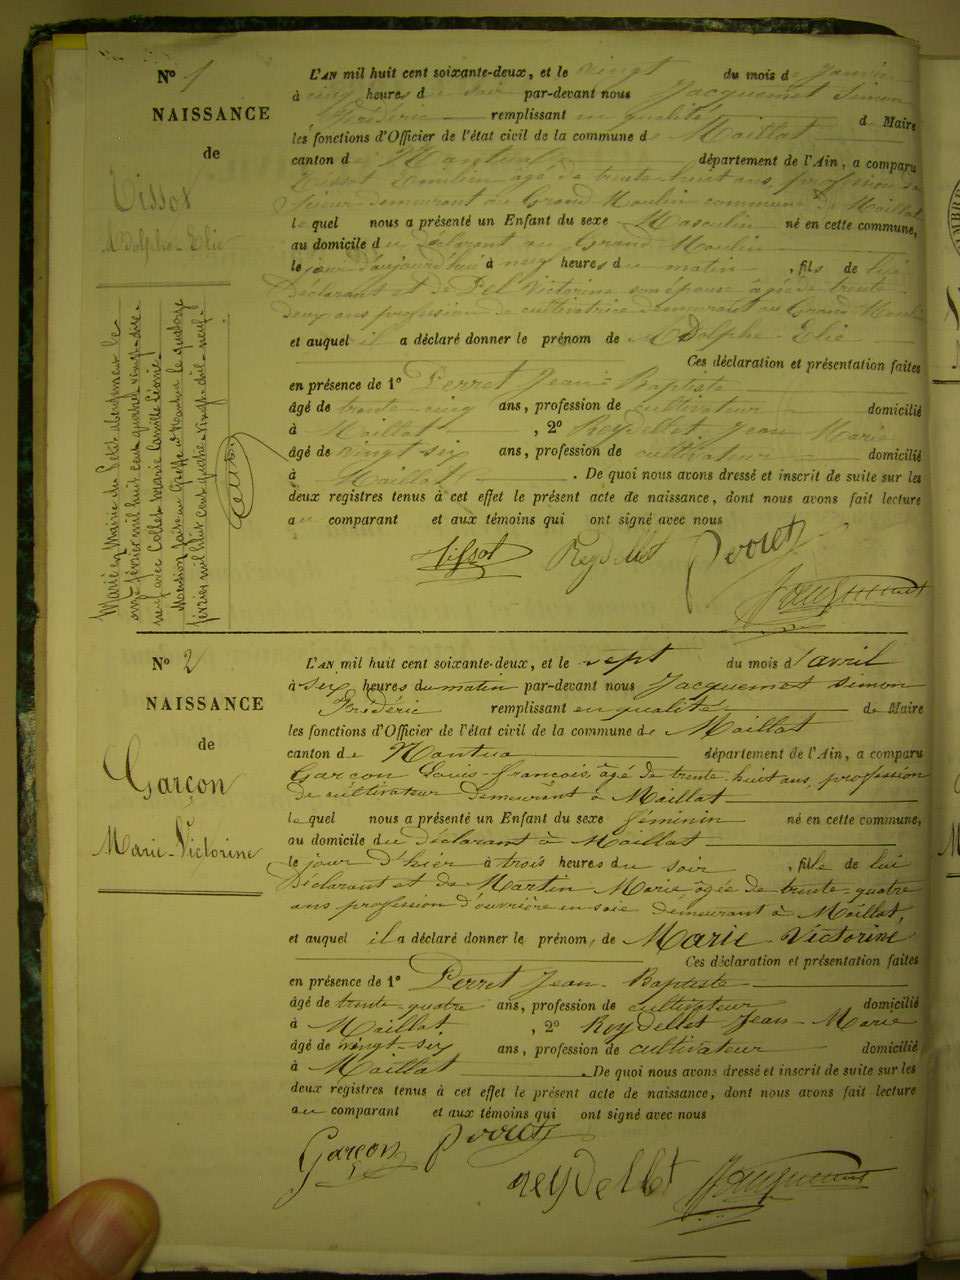 N° 1
NAISSANCE
de
Tissot
Adolphe-Elie
L'AN mil huit cent soixante-deux, et le vingt du mois de Janvier
à cinq heures du soir par-devant nous Jacquemet Simon
Frédéric remplissant en qualité de Maire
les fonctions d'Officier de l'état civil de la commune de Maillat
canton de Nantua département de l'Ain, a comparu
Tissot Emilien âgé de trente-huit ans, profession de
scieur demeurant au Grand Moulin commune de Maillat
lequel nous a présenté un Enfant du sexe Masculin né en cette commune,
au domicile du déclarant au Grand Moulin
le jour d'aujourd'hui à neuf heures du matin, fils de lui
Déclarant et de Victorine son épouse âgée de trente
deux ans profession de cultivatrice demeurant au Grand Moulin
et auquel il a déclaré donner le prénom de Adolphe-Elie
Ces déclaration et présentation faites
en présence de 1° Perret Jean Baptiste
âgé de trente-cinq ans, profession de cultivateur domicilié
à Maillat, 2° Reydellet Jean Marie
âgé de vingt six ans, profession de cultivateur domicilié
à Maillat. De quoi nous avons dressé et inscrit de suite sur les
deux registres tenus à cet effet le présent acte de naissance, dont nous avons fait lecture
au comparant et aux témoins qui ont signé avec nous
Tissot Reydellet Perret
Jacquemet
Marié en Mairie du Petit Abergement le
onze février mil huit cent quatre vingt dix
neuf avec Collet Marie Camille Léonie.
Mention faite au Greffe à Nantua le quatorze
février mil huit cent quatre-vingt-dix-neuf.
N° 2
NAISSANCE
de
Garçon
Marie-Victorine
L'AN mil huit cent soixante-deux, et le sept du mois d'avril
à six heures du matin par-devant nous Jacquemet Simon
Frédéric remplissant en qualité de Maire
les fonctions d'Officier de l'état civil de la commune de Maillat
canton de Nantua département de l'Ain, a comparu
Garçon Louis-françois, âgé de trente-huit ans, profession
de cultivateur demeurant à Maillat
lequel nous a présenté un Enfant du sexe féminin né en cette commune,
au domicile du déclarant à Maillat
le jour d'hier à trois heures du soir, fille de lui
Déclarant et de Martin Marie âgée de trente-quatre
ans profession d'ouvrière en soie demeurant à Maillat,
et auquel il a déclaré donner le prénom, de Marie-Victorine
Ces déclaration et présentation faites
en présence de 1° Perret Jean-Baptiste
âgé de trente-quatre ans, profession de cultivateur domicilié
à Maillat, 2° Reydellet Jean-Marie
âgé de vingt-six ans, profession de cultivateur domicilié
à Maillat. De quoi nous avons dressé et inscrit de suite sur les
deux registres tenus à cet effet le présent acte de naissance, dont nous avons fait lecture
au comparant et aux témoins qui ont signé avec nous
Garçon Perret
reydellet Jacquemet